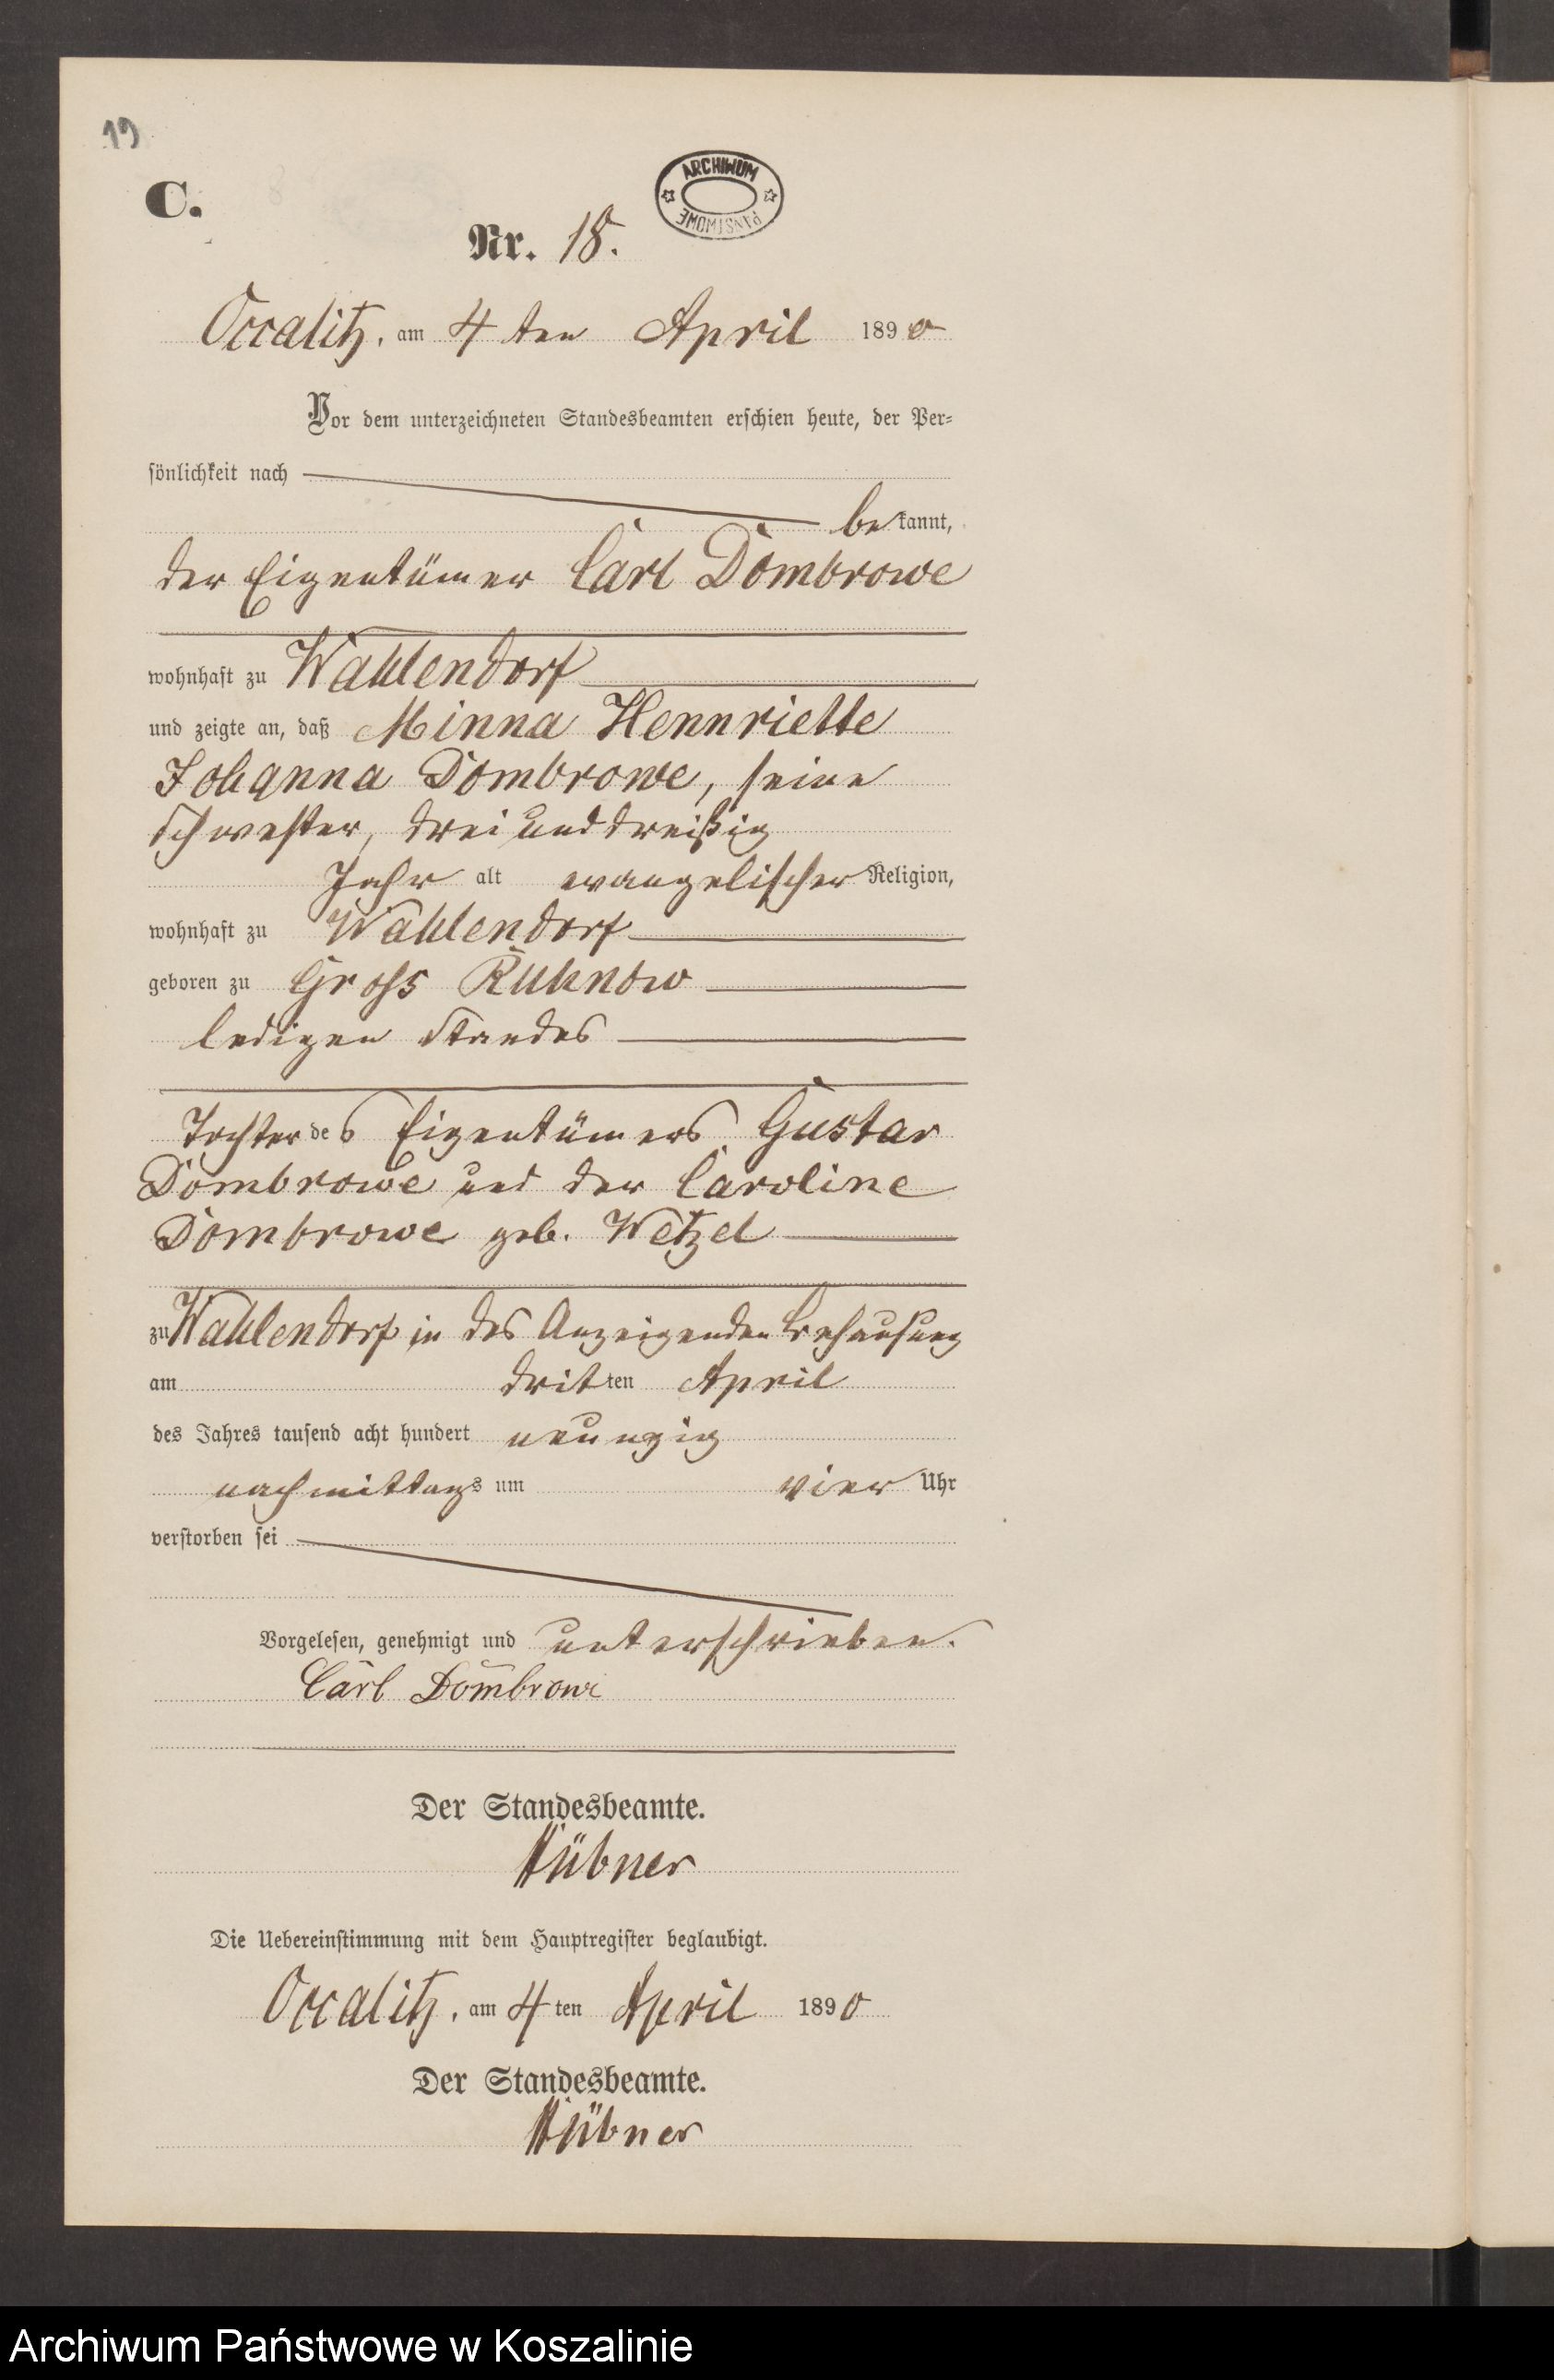 19
C.
ARCHIWUM
PAŃSTWOWE
Nr. 18.
Occalitz. am 4ten April 1890
Vor dem unterzeichneten Standesbeamten erschien heute, der Per-
sönlichkeit nach
bekannt,
der Eigentümer Carl Dombrowe
wohnhaft zu Wahlendorf
und zeigte an, daß Minna Hennriette
Johanna Dombrowe, seine
Schwester, drei und dreißig
Jahr alt evangelischer Religion,
wohnhaft zu Wahlendorf
geboren zu Gross Ruhnow
ledigen Standes
Tochter des Eigentümers Gustav
Dombrowe und der Caroline
Dombrowe geb. Wetzel
zu Wahlendorf in des Anzeigenden Behausung
am dritten April
des Jahres tausend acht hundert neunzig
nachmittags um vier Uhr
verstorben sei
Vorgelesen, genehmigt und unterschrieben.
Carl Dombrowe
Der Standesbeamte.
Hübner
Die Uebereinstimmung mit dem Hauptregister beglaubigt.
Occalitz. am 4ten April 1890
Der Standesbeamte.
Hübner
Archiwum Państwowe w Koszalinie